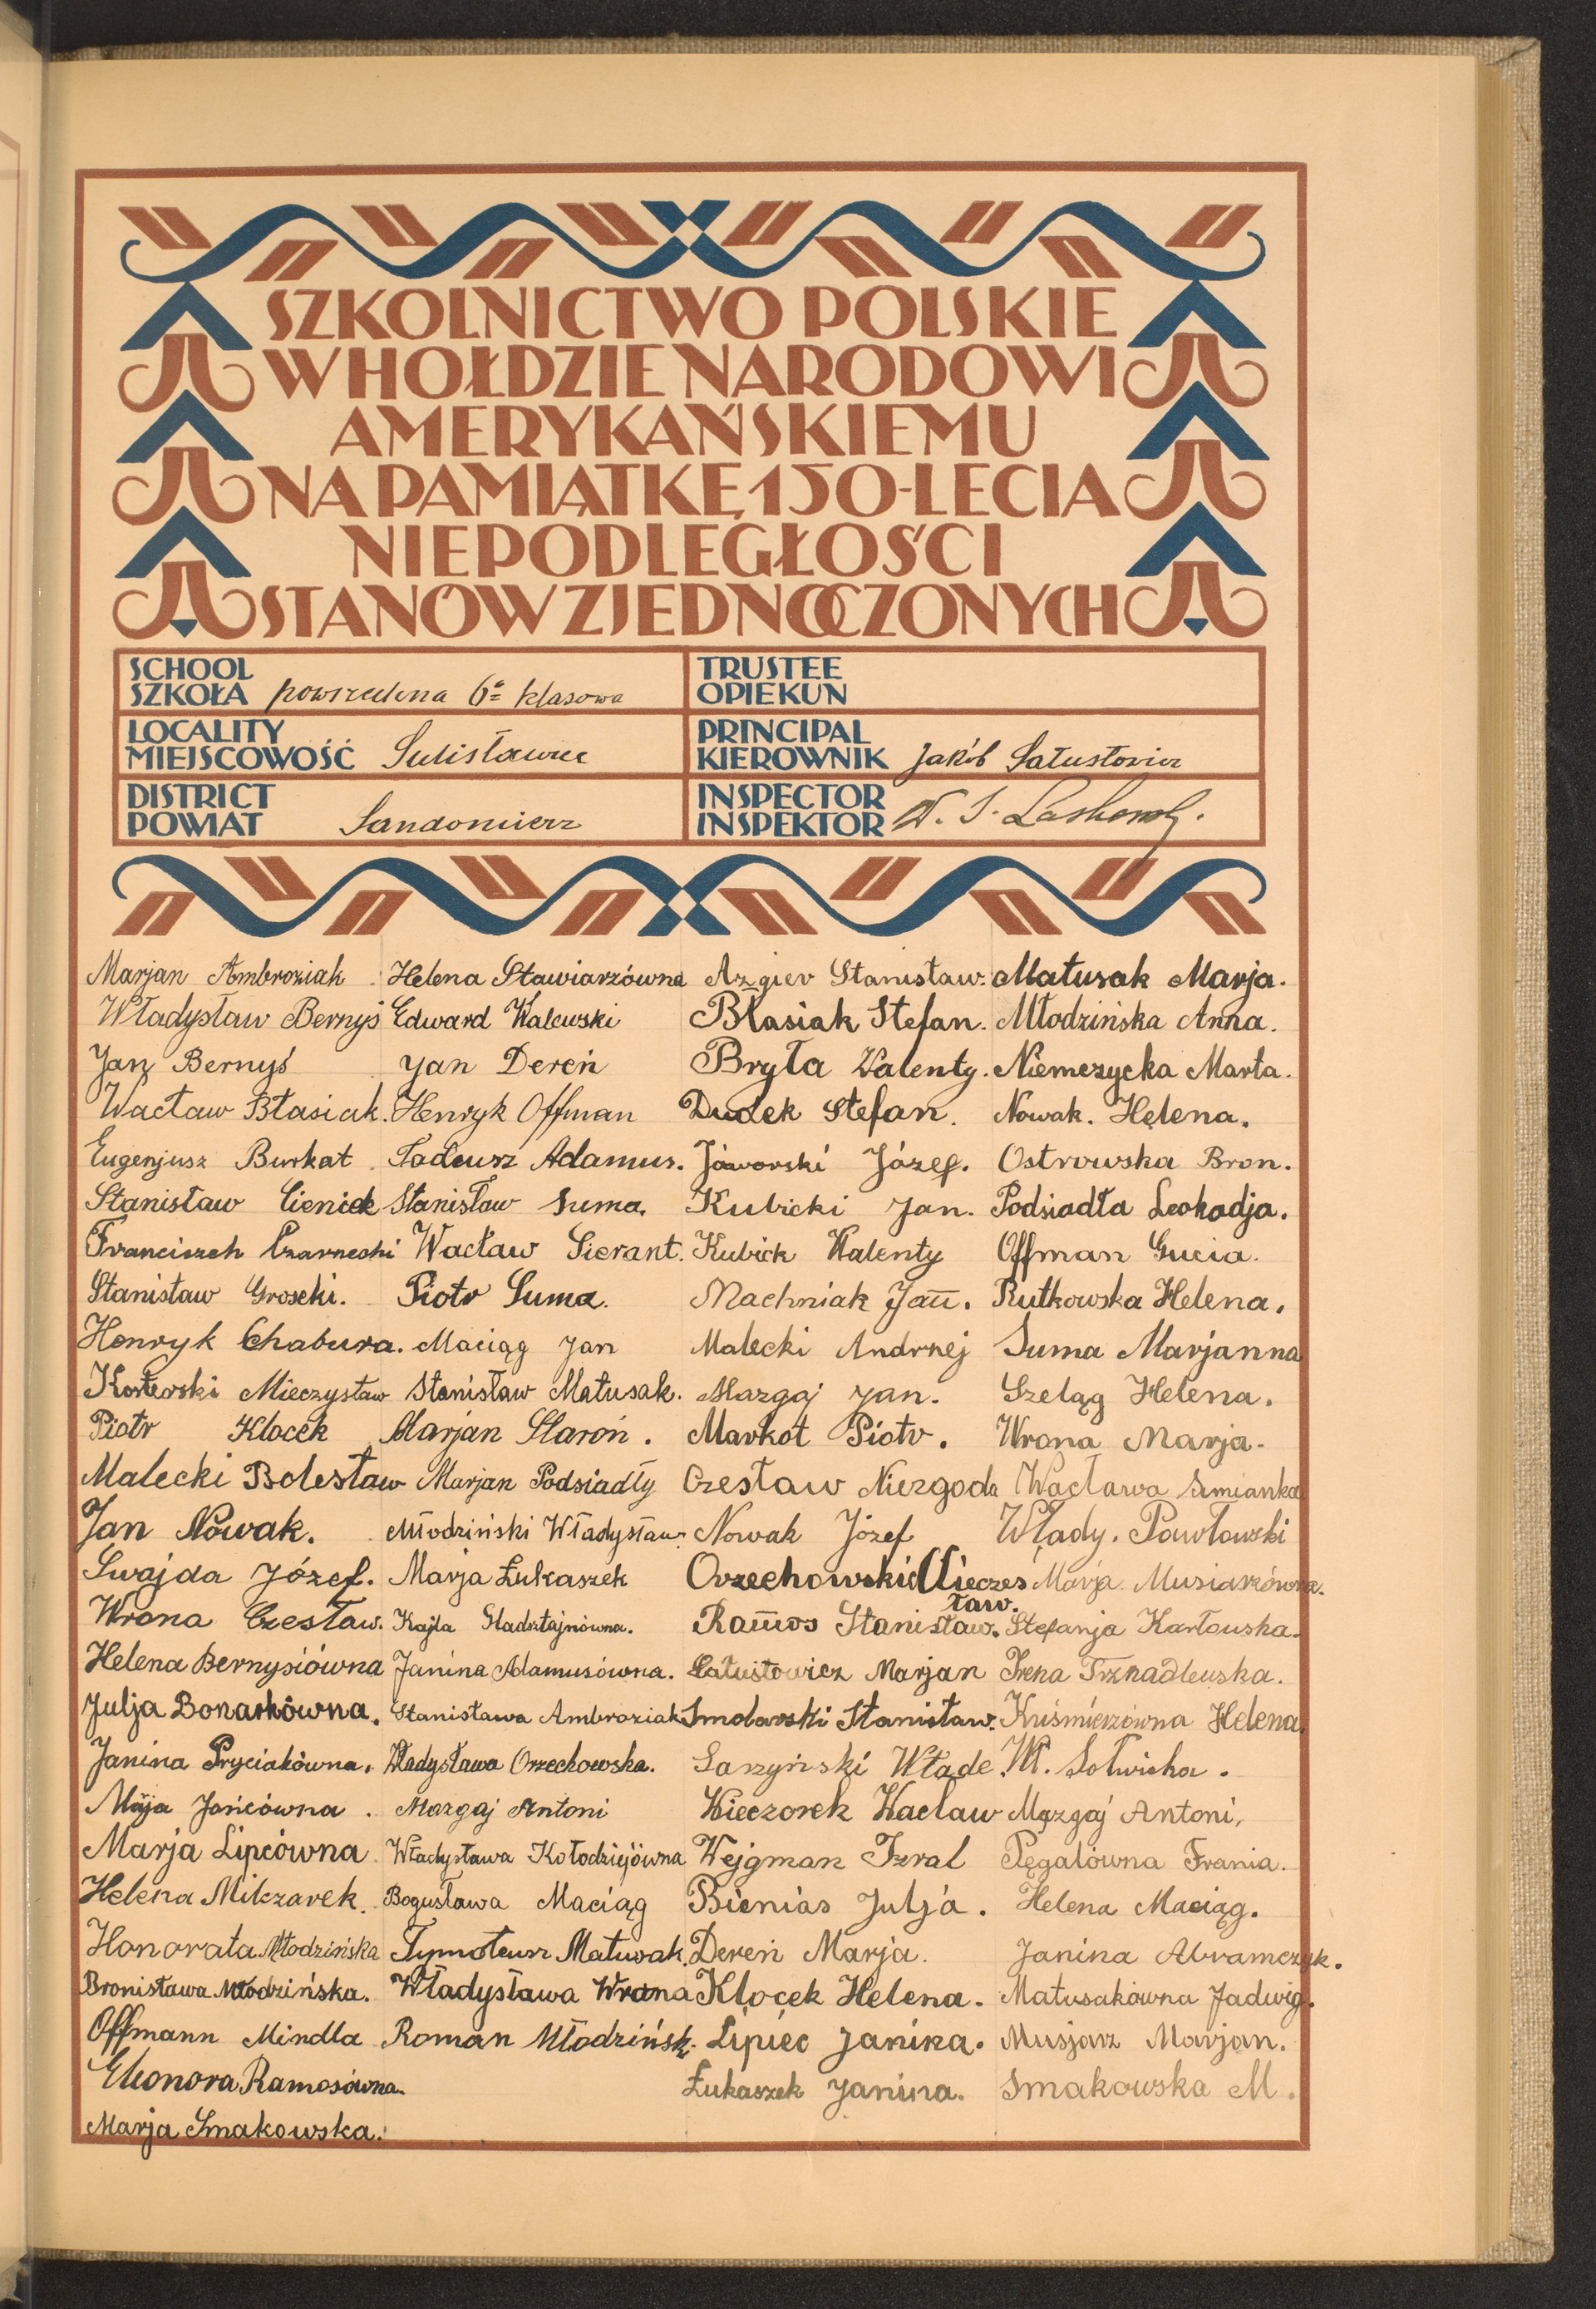 SZKOLNICTWO POLSKIE
W HOŁDZIE NARODOWI
AMERYKAŃSKIEMU
NA PAMIĄTKĘ 150-LECIA
NIEPODLEGŁOŚCI
STANÓW ZJEDNOCZONYCH
SCHOOL
SZKOŁA powszechna 6-o klasowa
TRUSTEE
OPIEKUN
LOCALITY
MIEJSCOWOŚĆ Sulisławice
PRINCIPAL
KIEROWNIK Jakób Sałustowicz
DISTRICT
POWIAT Sandomierz
INSPECTOR
INSPEKTOR
Marjan Ambroziak
Władysław Bernyś
Jan Bernyś
Wacław Błasiak.
Eugenjusz Burkat
Stanisław Cieniek
Franciszek Czarnecki
Stanisław Groscki.
Henryk Chabura.
Kosterski Mieczysław
Piotr Klocek
Malecki Bolesław
Jan Nowak.
Swajda Józef.
Wrona Czesław.
Helena Bernysiówna
Julja Bonarkówna.
Janina Pryciakówna.
Marja Jońcówna.
Marja Lipcówna
Helena Milczarek.
Honorata Młodzińska
Bronisława Młodzińska.
Offmann Mindla
Eleonora Ramosówna.
Marja Smakowska.
Helena Stawiarzówna
Edward Walewski
Jan Dereń
Henryk Offman
Tadeusz Adamus.
Stanisław Suma.
Wacław Sierant.
Piotr Suma.
Maciąg Jan
Stanisław Matusak.
Marjan Staroń.
Marjan Podsiadły
Młodziński Władysław.
Marja Łukaszek
Kajla
Janina Adamusówna.
Stanisława Ambroziak
Władysława Orzechowska.
Mazgaj Antoni
Władysława Kołodziejówna
Bogusława Maciąg
Tymoteusz Matusak.
Władysława Wrona
Roman Młodzińsk.
Azgier Stanisław.
Błasiak Stefan.
Bryła Walenty.
Dudek Stefan.
Jaworski Józef.
Kubicki Jan.
Kubick Walenty
Machniak Jan.
Malecki Andrzej
Mazgaj Jan.
Markot Piotr.
Czesław Niezgoda
Nowak Józef
Orzechowski Mieczesław.
Ramos Stanisław.
Sałustowicz Marjan
Smolarski Stanisław.
Sarzyński Włade.
Wieczorek Wacław
Wejgman Izral
Bienias Julja.
Dereń Marja.
Klocek Helena.
Lipiec Janina.
Łukaszek Janina.
Matusak Marja.
Młodzińska Anna.
Niemczycka Marta.
Nowak. Helena.
Ostrowska Bron.
Podsiadła Leokadja.
Offman Gucia.
Rutkowska Helena.
Suma Marjanna
Szeląg Helena.
Wrona Marja.
Wacława Sumianka
Włady. Pawłowski
Marja Musiarzówna.
Stefanja Karłowska.
Irena Trznadlewska.
Kuśmierzówna Helena.
Wł. Sotwicka.
Mązgaj Antoni.
Pęgalówna Frania.
Helena Maciąg.
Janina Abramczyk.
Matusakówna Jadwig.
Musjarz Marjan.
Smakowska M.